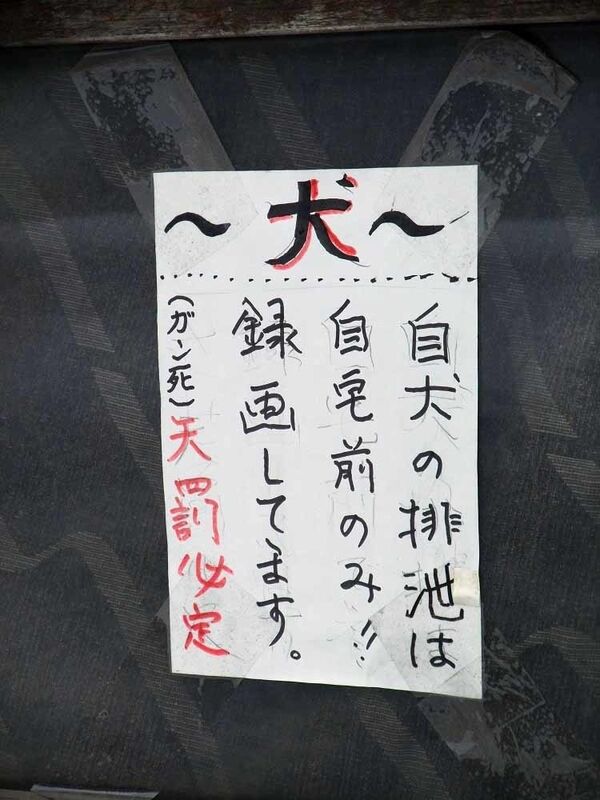 ～犬～
自犬の排泄は
自宅前のみ!!
録画してます。
(ガン死)天罰必定